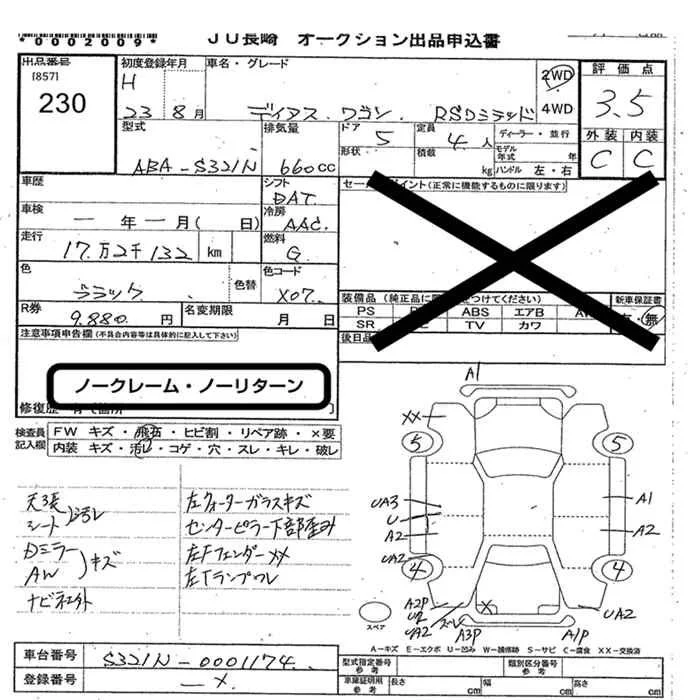 *0002009*
JU長崎 オークション出品申込書
出品番号
[857]
230
初度登録年月
H
23 8月
車名・グレード
ディアス ワゴン RSリミテッド
2WD
4WD
評価点
3.5
外装 内装
C C
型式
ABA-S321N
排気量
660cc
ドア
5
形状
定員
4人
積載
kg
ディーラー・並行
モデル年式 年
ハンドル 左・右
車歴
シフト
DAT
セールスポイント(正常に機能するものに限ります)
車検
ー年ー月( 日)
冷房
AAC
走行
17万2千132 km
燃料
G
色
ブラック
色替
色コード
X07
R券
9.880円
名変期限
月 日
装備品
PS
ABS エアB
SR
TV カワ
新車保証書
有・無
後日品
注意事項申告欄(不具合内容等は具体的に記入して下さい)
ノークレーム・ノーリターン
検査員記入欄
FW キズ・飛石・ヒビ割・リペア跡・×要
内装 キズ・汚レ・コゲ・穴・スレ・キレ・破レ
天張
シート 汚レ
Dミラー
AW キズ
ナビ社外
左クォーターガラスキズ
センターピラー下部歪み
左Fフェンダー××
左Tランプワレ
A1
XX
5
5
UA3
U
A2
A1
A2
UA2
4
4
A2P
U2
UA2
スレ
X
A3P
A1P
UA2
スペア
A-キズ E-エクボ U-凹み W-補修跡 S-サビ C-腐食 XX-交換済
車台番号
S321N-0001174
登録番号
ー×
型式指定番号
参考
類別区分番号
参考
車庫証明用
参考
長さ cm
幅 cm
高さ cm